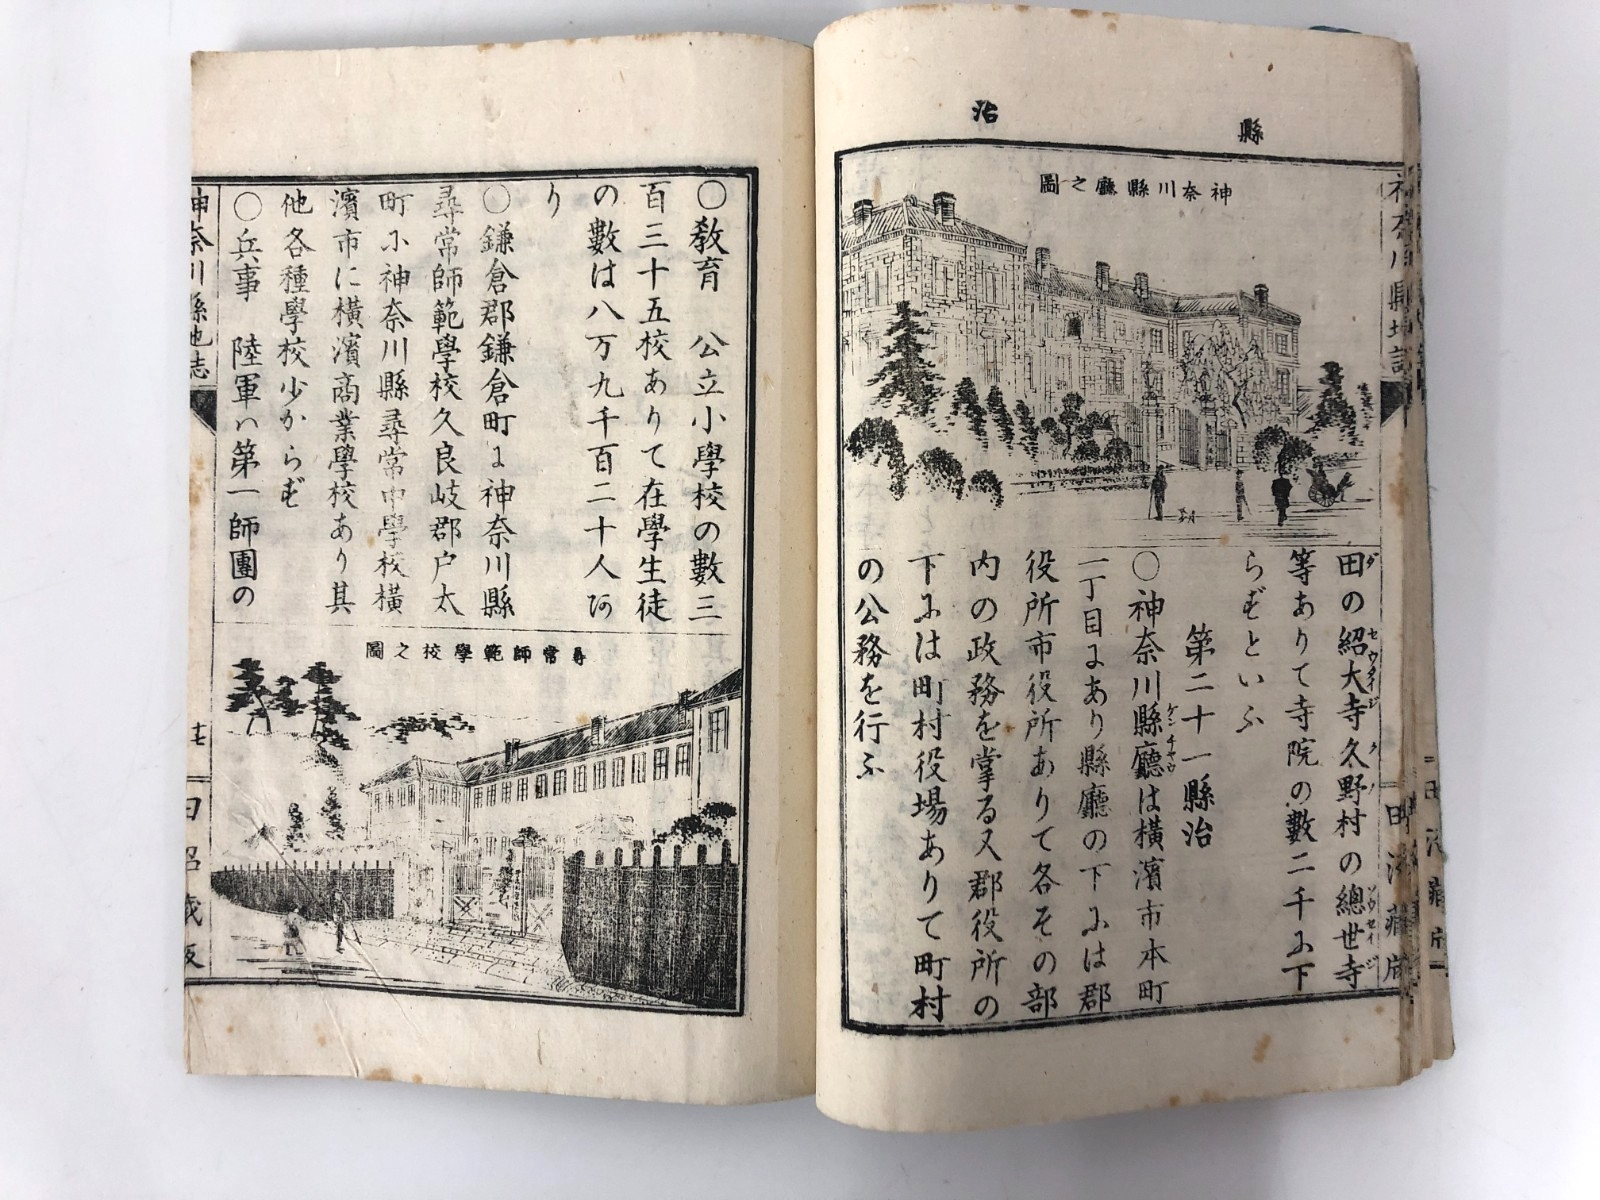 縣
治
神奈川縣廳之圖
田の紹大寺久野村の總世寺
等ありて寺院の數二千に下
らずといふ
第二十一縣治
○神奈川縣廳は横濱市本町
一丁目にあり縣廳の下には郡
役所市役所ありて各その部
内の政務を掌る又郡役所の
下には町村役場ありて町村
の公務を行ふ
○教育 公立小學校の數三
百三十五校ありて在學生徒
の數は八万九千百二十人あ
り
○鎌倉郡鎌倉町に神奈川縣
尋常師範學校久良岐郡戸太
町に神奈川縣尋常中學校横
濱市に横濱商業學校あり其
他各種學校少からず
○兵事 陸軍は第一師團の
尋常師範學校之圖
神奈川縣地誌